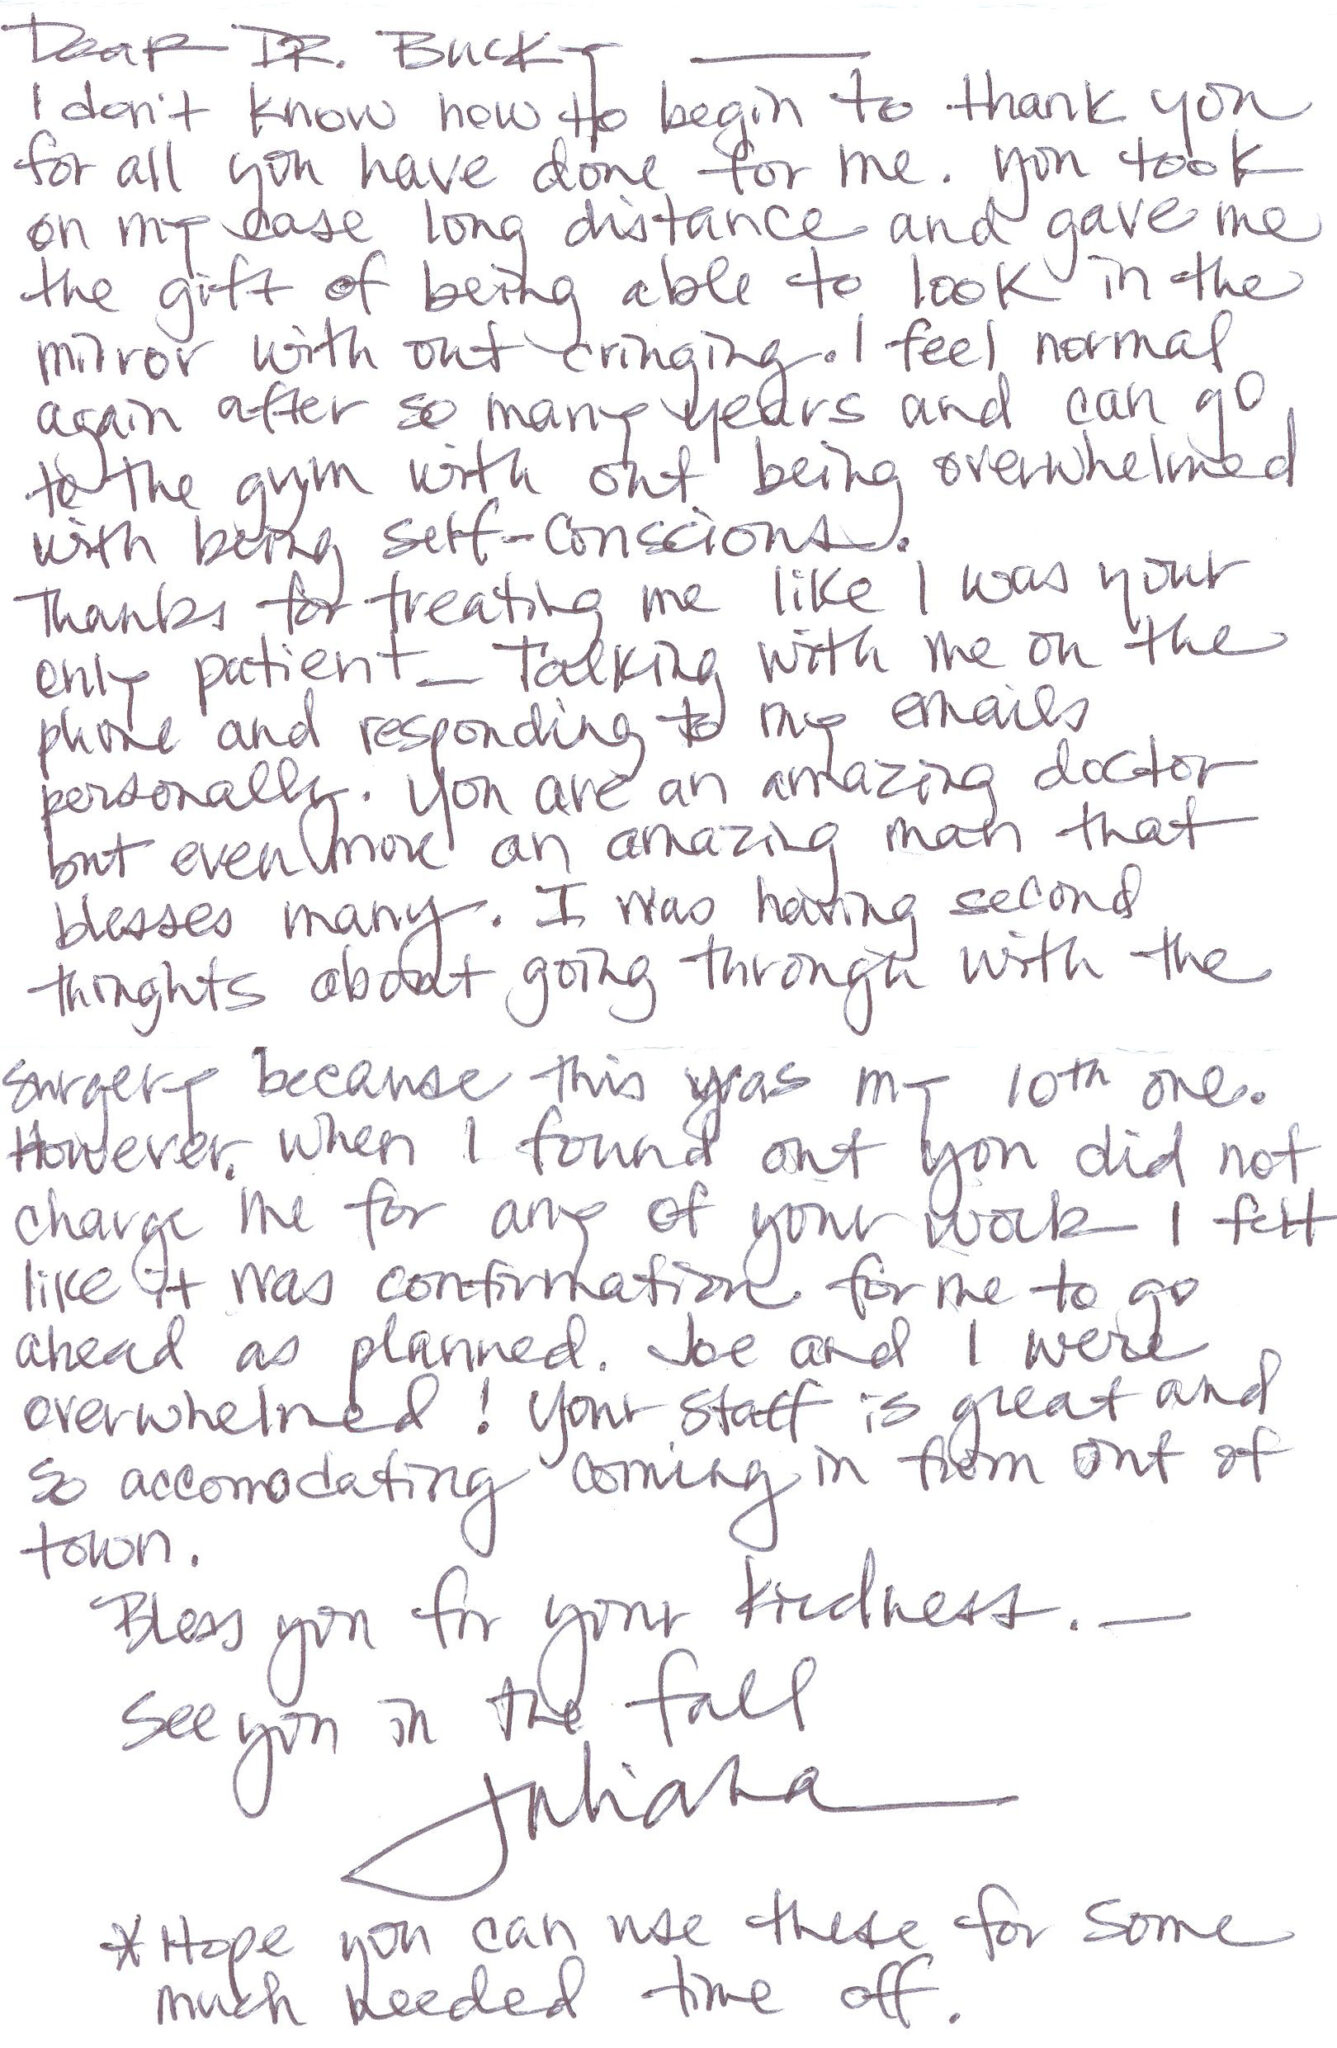 Dear Dr. Bucky ——
I don't know how to begin to thank you
for all you have done for me. You took
on my case long distance and gave me
the gift of being able to look in the
mirror with out cringing. I feel normal
again after so many years and can go
to the gym with out being overwhelmed
with being self-conscious.
Thanks for treating me like I was your
only patient — Talking with me on the
phone and responding to my emails
personally. You are an amazing doctor
but even more an amazing man that
blesses many. I was having second
thoughts about going through with the
surgery because this was my 10th one.
However, when I found out you did not
charge me for any of your work I felt
like it was confirmation for me to go
ahead as planned. Joe and I were
overwhelmed! Your staff is great and
so accomodating coming in from out of
town.
Bless you for your kindness. —
See you in the fall
Juliana
*Hope you can use these for some
much needed time off.